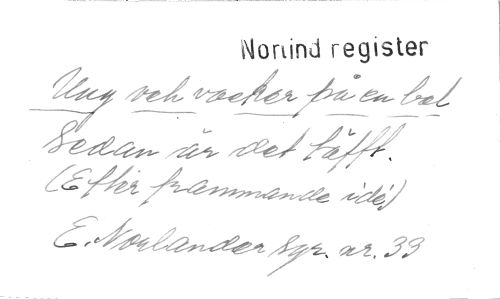 Norlind register
Ung och vacker på en bal
Sedan är det tåfft.
(Efter frammande idé)
E. Norlander Syr. nr. 33